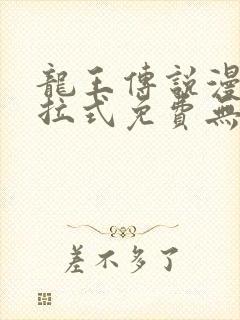 龍王傳說漫
拉式免費無
差不多了